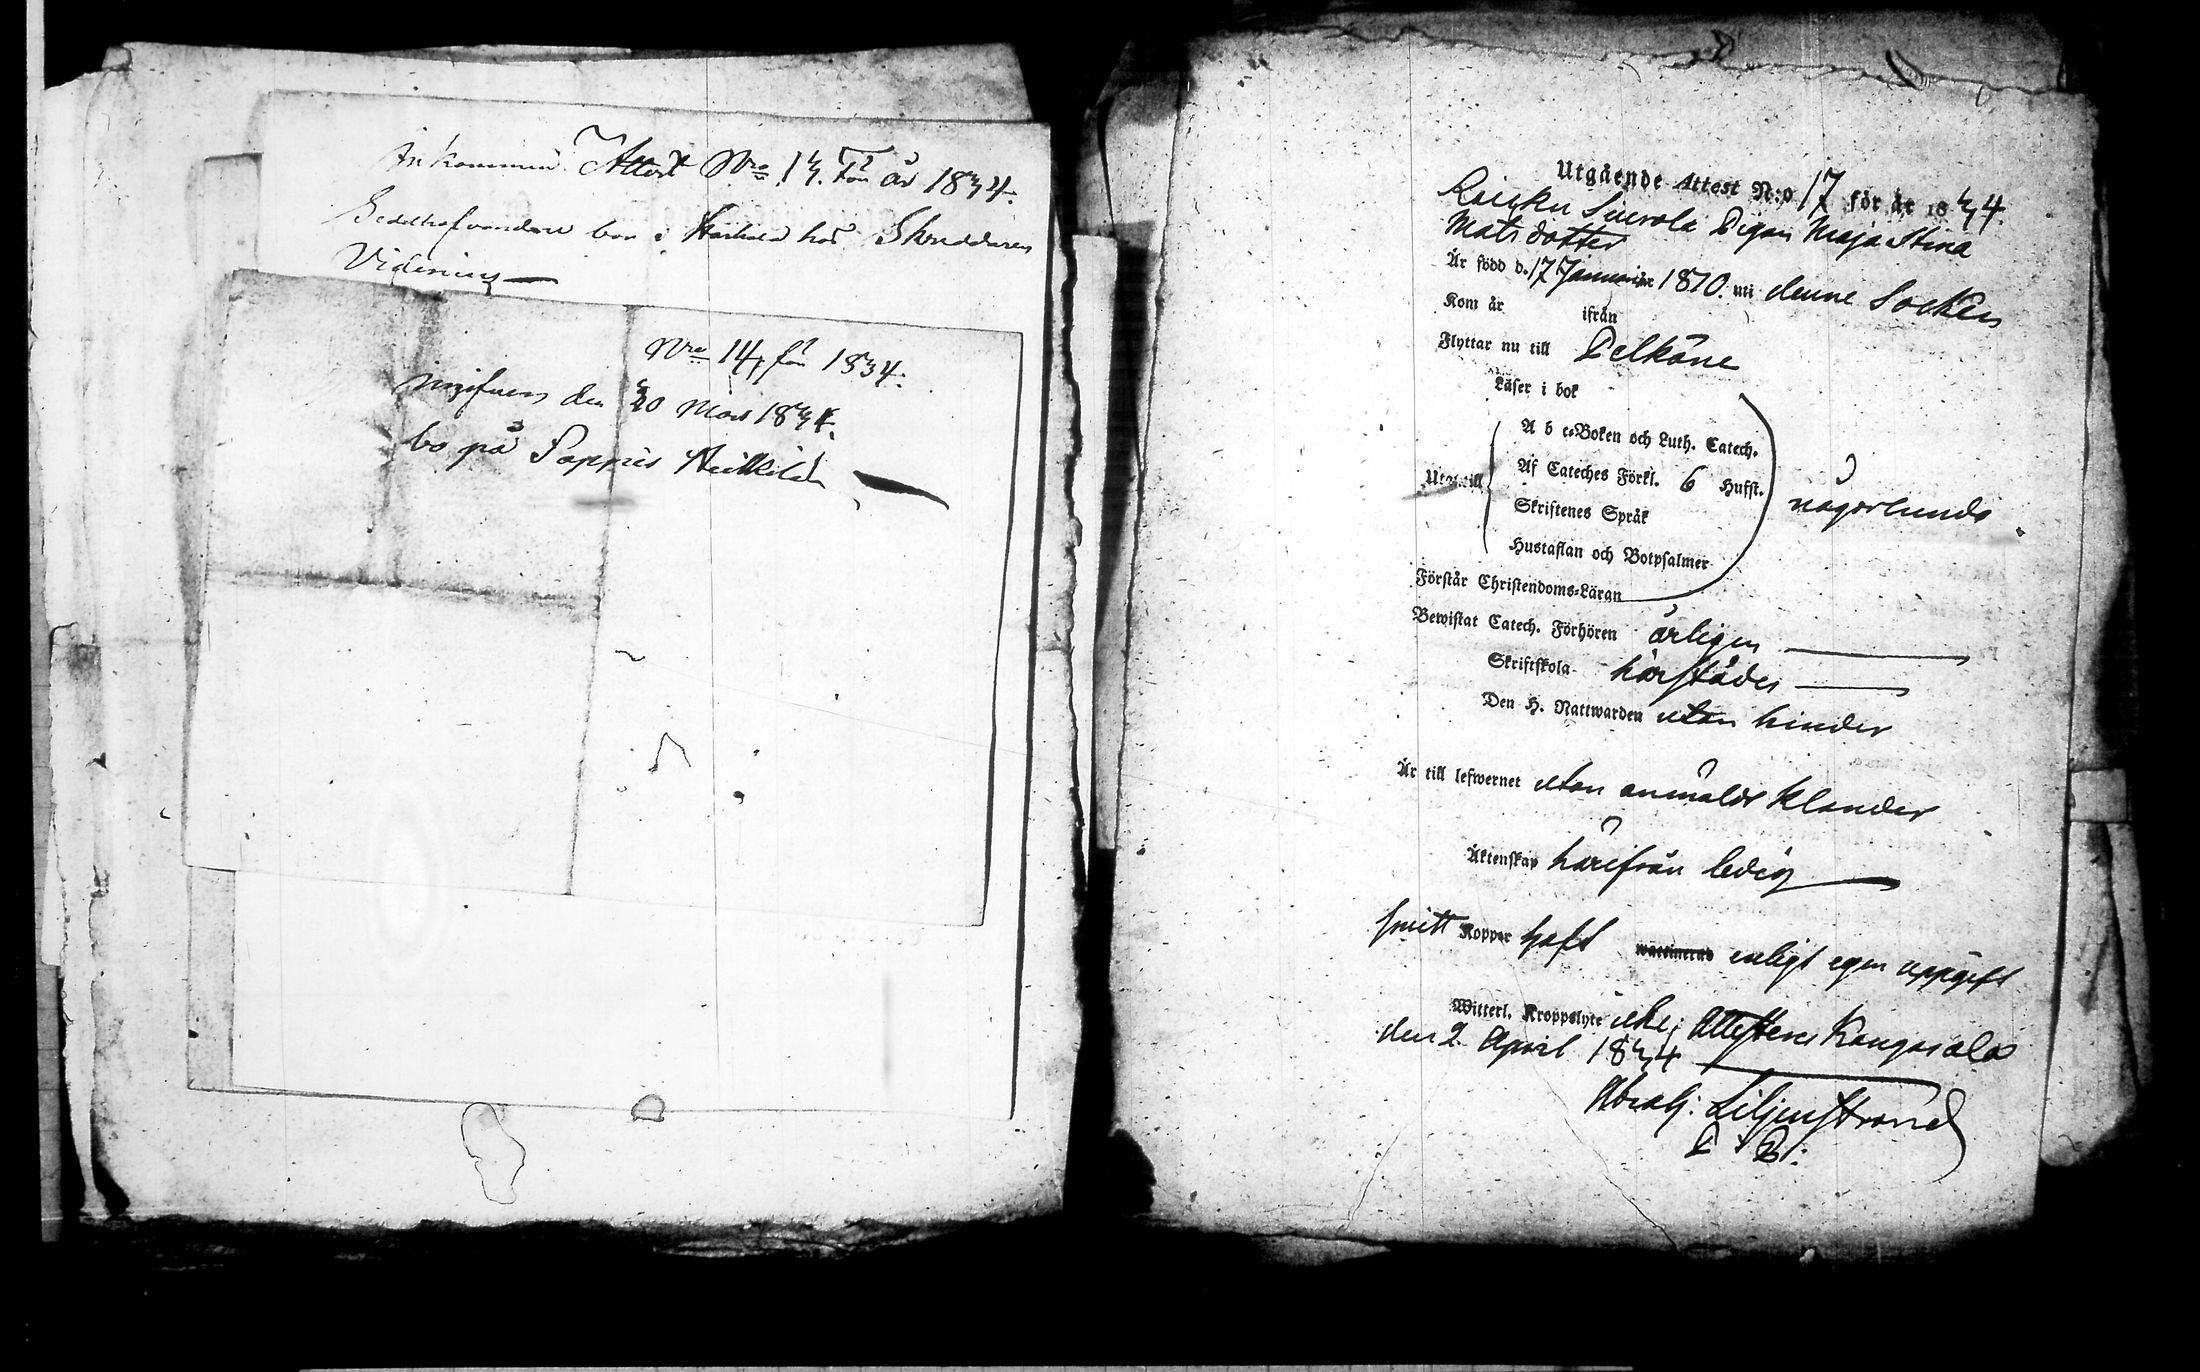 Ankommen Attest Nro 13. för år 1834.
bor i Härkälä hos Skreddaren
Videnius
Nro 14, för 1834.
den 20 Mars 1834.
bo på Pappis Heikkilä
Utgående Attest N:o 17 för år 1834.
Raicku Suerola Pigan Maja Stina
Mats dotter
Är född d. 17 Januarii 1810. uti denne Socken
Kom år ifrån
Flyttar nu till Pelkäne
Läser i bok
A b c-Boken och Luth. Catech.
Utan till
Af Cateches Förkl. 6 Hufst.
någorlunda
Skriftenes Språk
Hustaflan och Botpsalmer
Förstår Christendoms-Läran
Bewistat Catech. Förhören årligen
Skriftskola härstädes
Den H. Nattwarden utan hinder
Är till lefwernet utan anmäldt klander
Äktenskap härifrån ledig
Smitt Koppor haft waccinerad enligt egen uppgift
Witterl. Kroppslyte icke; Attesterar Kangasala
den 2 April 1834
Abrah: Liljenstrand